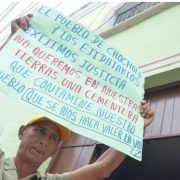 EL PUEBLO DE CHOCHOL
Y LOS EJIDATARIOS
EXIJIMOS JUSTICIA
NO QUEREMOS EN NUESTRA
TIERRAS UNA CEMENTERA
QUE CONTAMINE NUESTRO
PUEBLO QUE SE NOS HAGA VALER LA VOZ